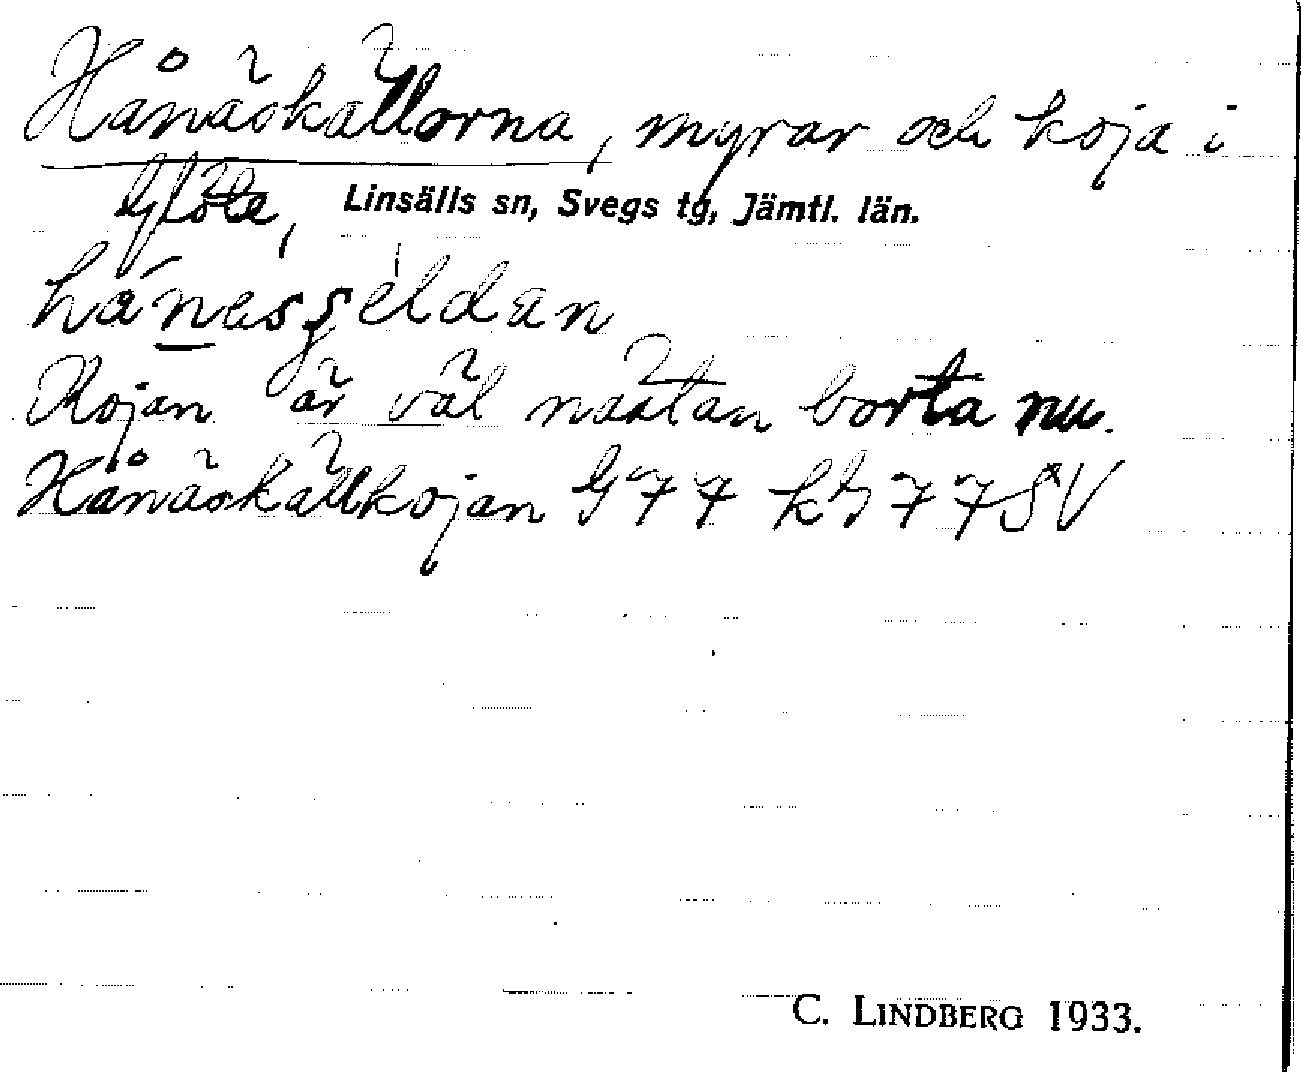 Hånäskällorna, myrar och koja i
Glöte, Linsälls sn, Svegs tg, Jämtl. län.
Kojan är väl nästan borta nu.
Hånäskällkojan G 77
C. LINDBERG 1933.